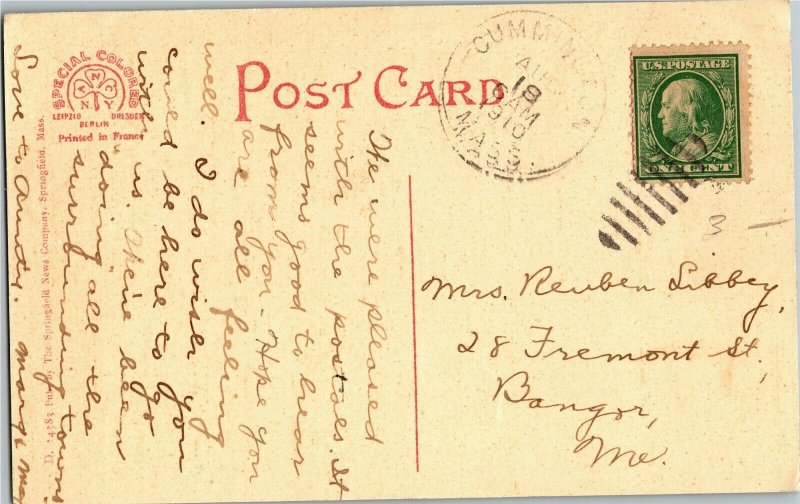 POST CARD
SPECIAL COLORED
ANC
NY
LEIPZIG DRESDEN
BERLIN
Printed in France
D. 14783 Pub. by The Springfield News Company, Springfield, Mass.
CUMMIN
AUG
18
AM
1910
MASS.
U.S. POSTAGE
ONE CENT
3 —
Mrs. Reuben Libbey,
28 Fremont St.,
Bangor,
Me.
The were pleased
with the postals. It
seems good to hear
from you - Hope you
are all feeling
well. I do wish you
could be here to go
with us. We've been
"doing" all the
surrounding towns
Love to Aunty. Mary & May